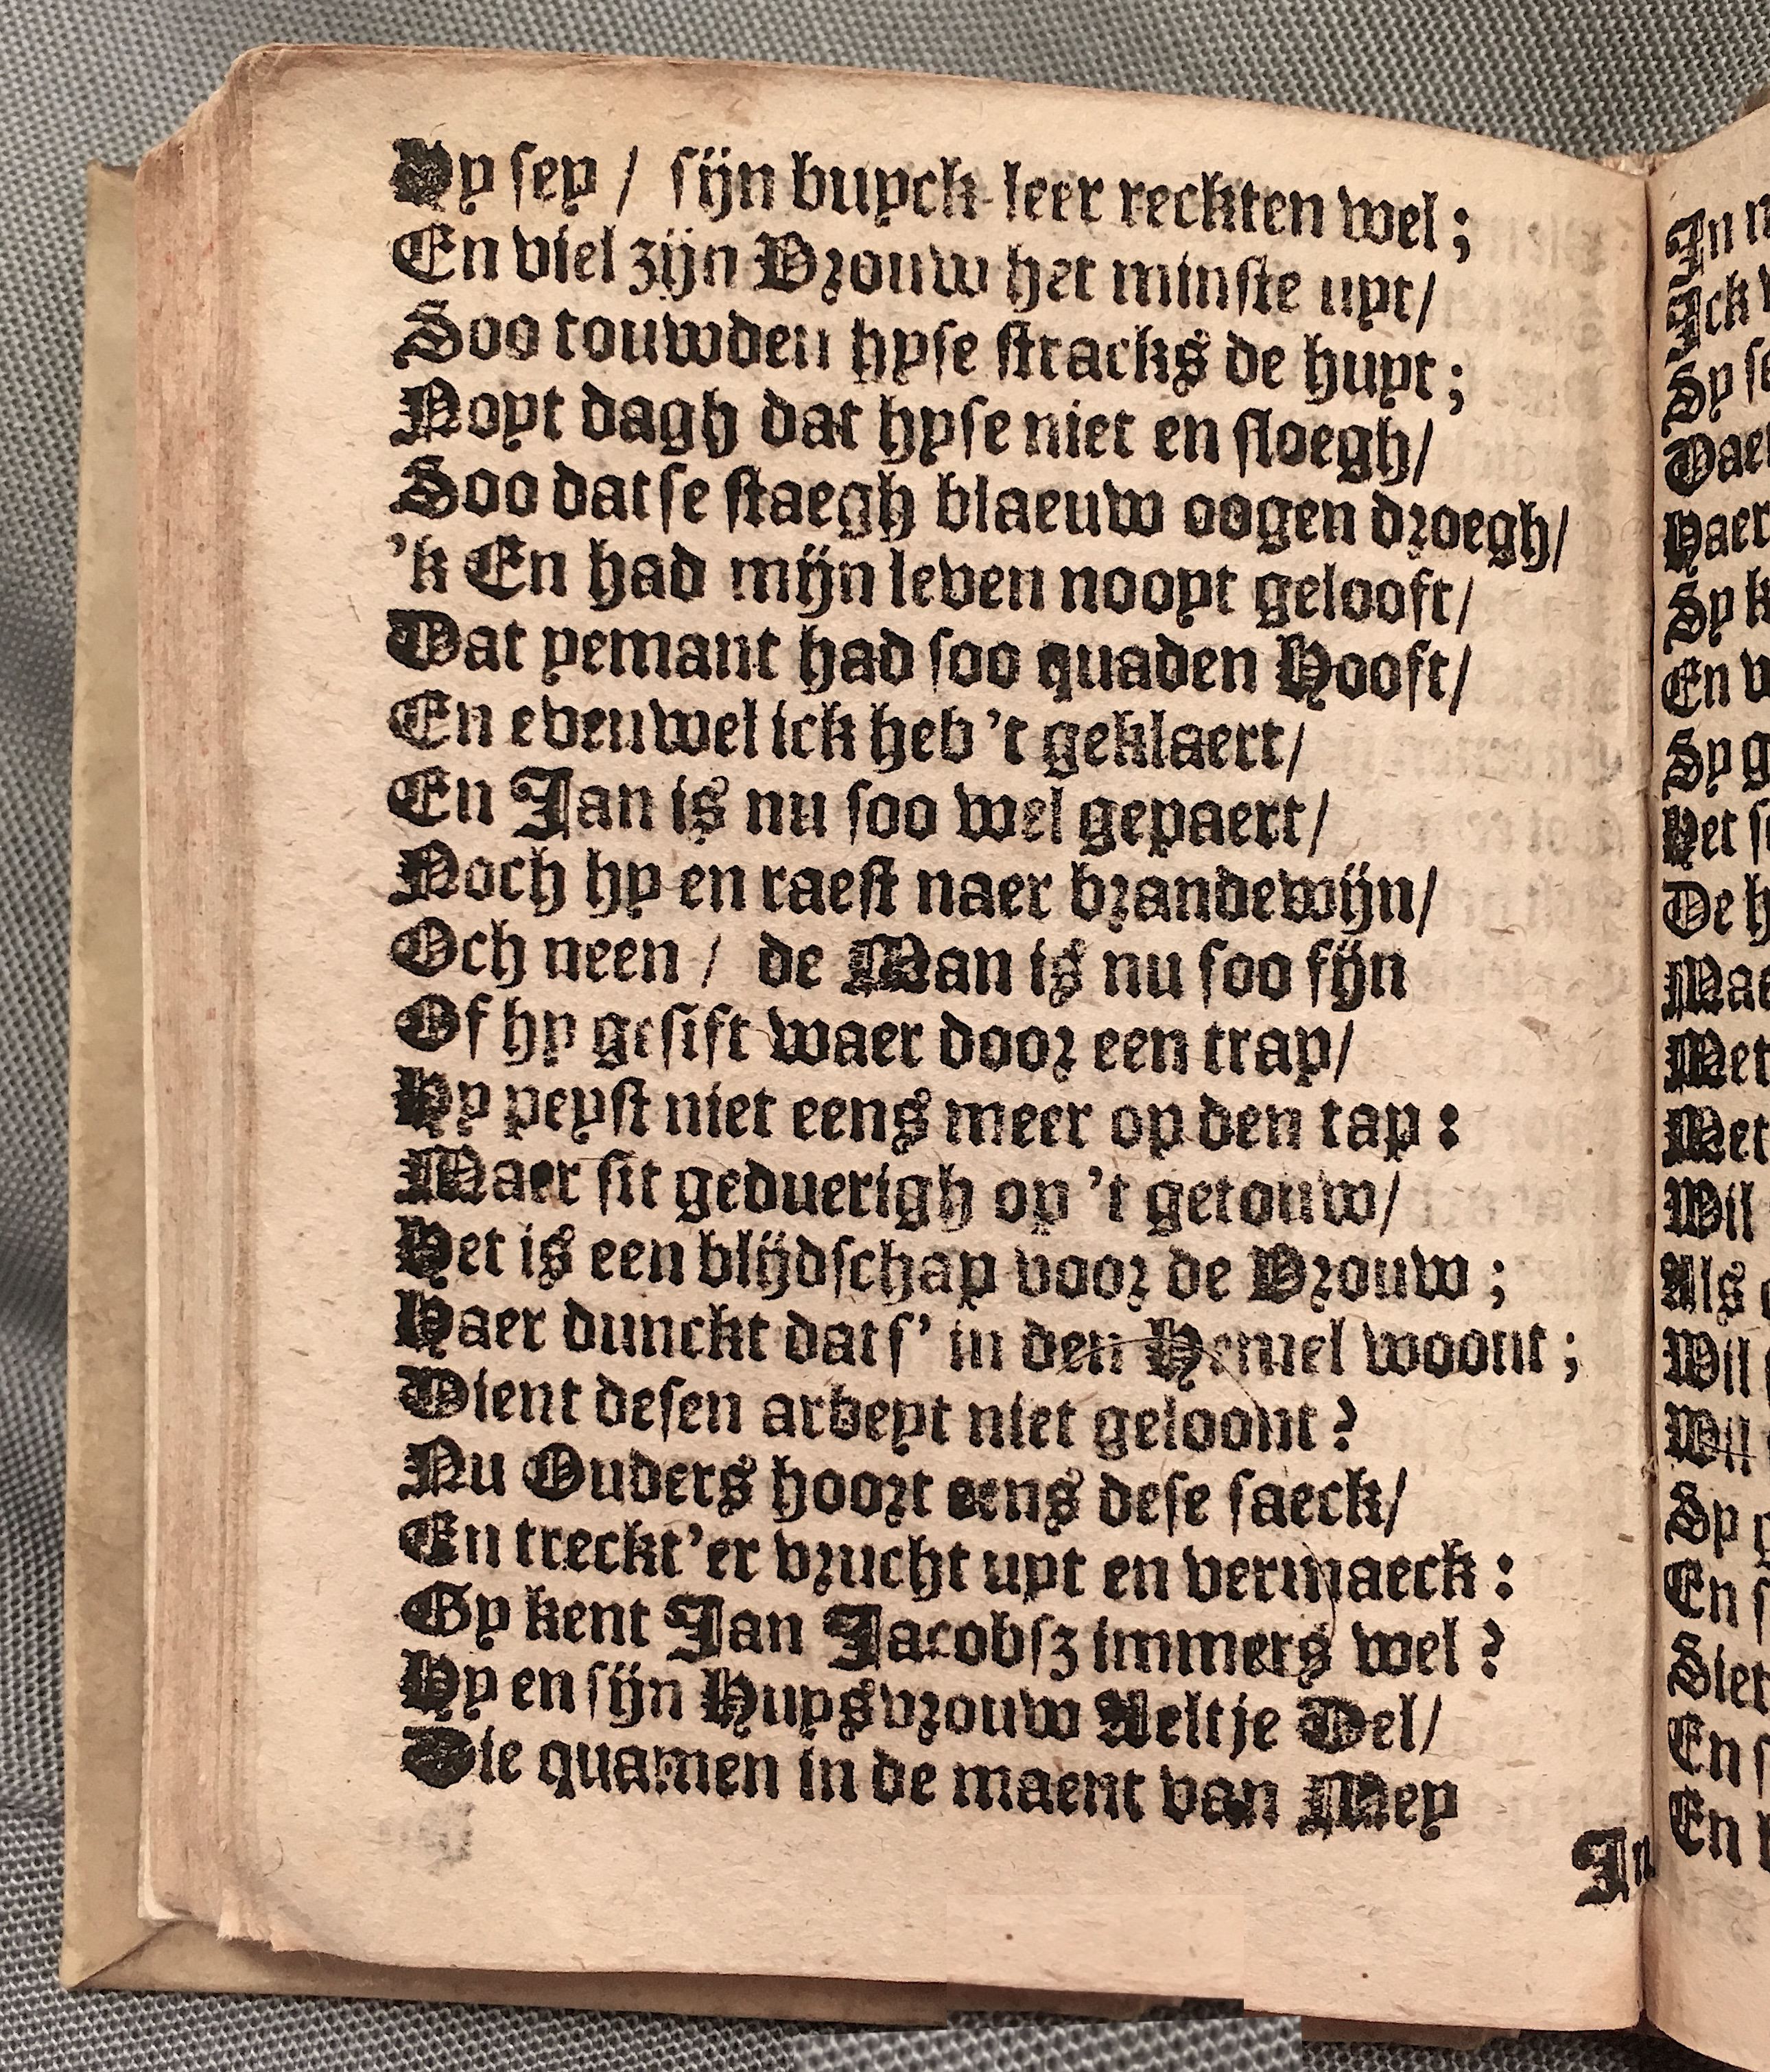 Hy sey / sijn buyck-leer reckten wel;
En viel zijn Vrouw het minste uyt/
Soo touwden hyse stracks de huyt;
Noyt dagh dat hyse niet en sloegh/
Soo datse staegh blaeuw oogen droegh/
'k En had mijn leven nooyt gelooft/
Dat yemant had soo quaden Hooft/
En evenwel ick heb 't geklaert/
En Jan is nu soo wel gepaert/
Noch hy en raest naer brandewijn/
Och neen / de Man is nu soo fijn
Of hy gesift waer door een trap/
Hy peyst niet eens meer op den tap:
Maer sit geduerigh op 't getouw/
Het is een blijdschap voor de Vrouw;
Haer dunckt dats' in den Hemel woont;
Dient desen arbeyt niet geloont?
Nu Ouders hoort eens dese saeck/
En treckt'er vrucht uyt en vermaeck:
Gy kent Jan Jacobsz immers wel?
Hy en sijn Huysvrouw Aeltje Del/
Die quamen in de maent van Mey
In
In
Ick
Sy
Haer
Sy
En
Sy
Het
De
Met
Met
Wil
Als
Wil
Wil
Sy
En
En
En